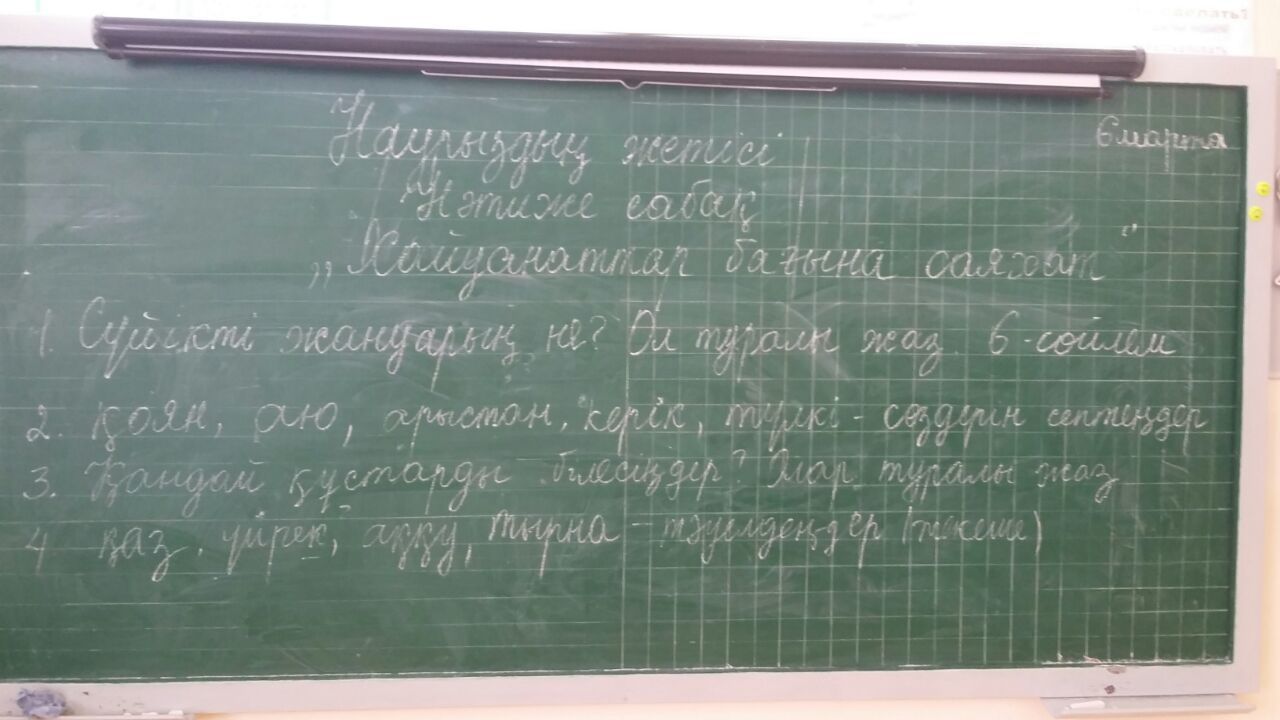 6 марта
Наурыздың жетісі
Нәтиже сабақ
„Хайуанаттар бағына саяхат"
1. Сүйікті жандарың не? Ол туралы жаз. 6-сөйлем
2. Қоян, аю, арыстан, керік, түлкі - сөздерін септеңдер
3. Қандай құстарды білесіңдер? Олар туралы жаз
4 қаз, үйрек, аққу, тырна - тәуелдеңдер (жекеше)